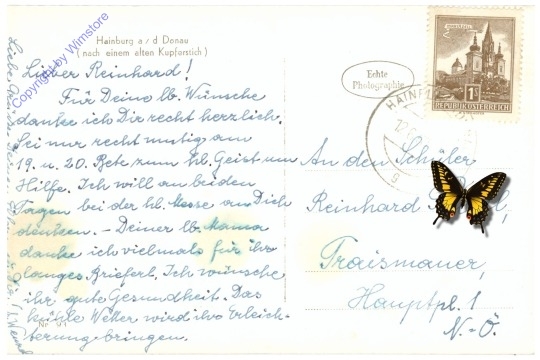 Hainburg a/d Donau
(nach einem alten Kupferstich)
Copyright by Wimstore
Lieber Reinhard!
Für Deine lb. Wünsche
danke ich Dir recht herzlich.
Sei nur recht mutig am
19. u. 20. Bete zum hl. Geist um
Hilfe. Ich will an beiden
Tagen bei der hl. Messe an Dich
denken. – Deiner lb. Mama
danke ich vielmals für ihr
langes Brieferl. Ich wünsche
ihr gute Gesundheit. Das
kühle Wetter wird ihr Erleich-
terung bringen.
Liebe
Echte
Photographie
REPUBLIK ÖSTERREICH
1S
HAINBURG
An den Schüler
Reinhard
Traismauer,
Hauptpl. 1
N.-Ö.